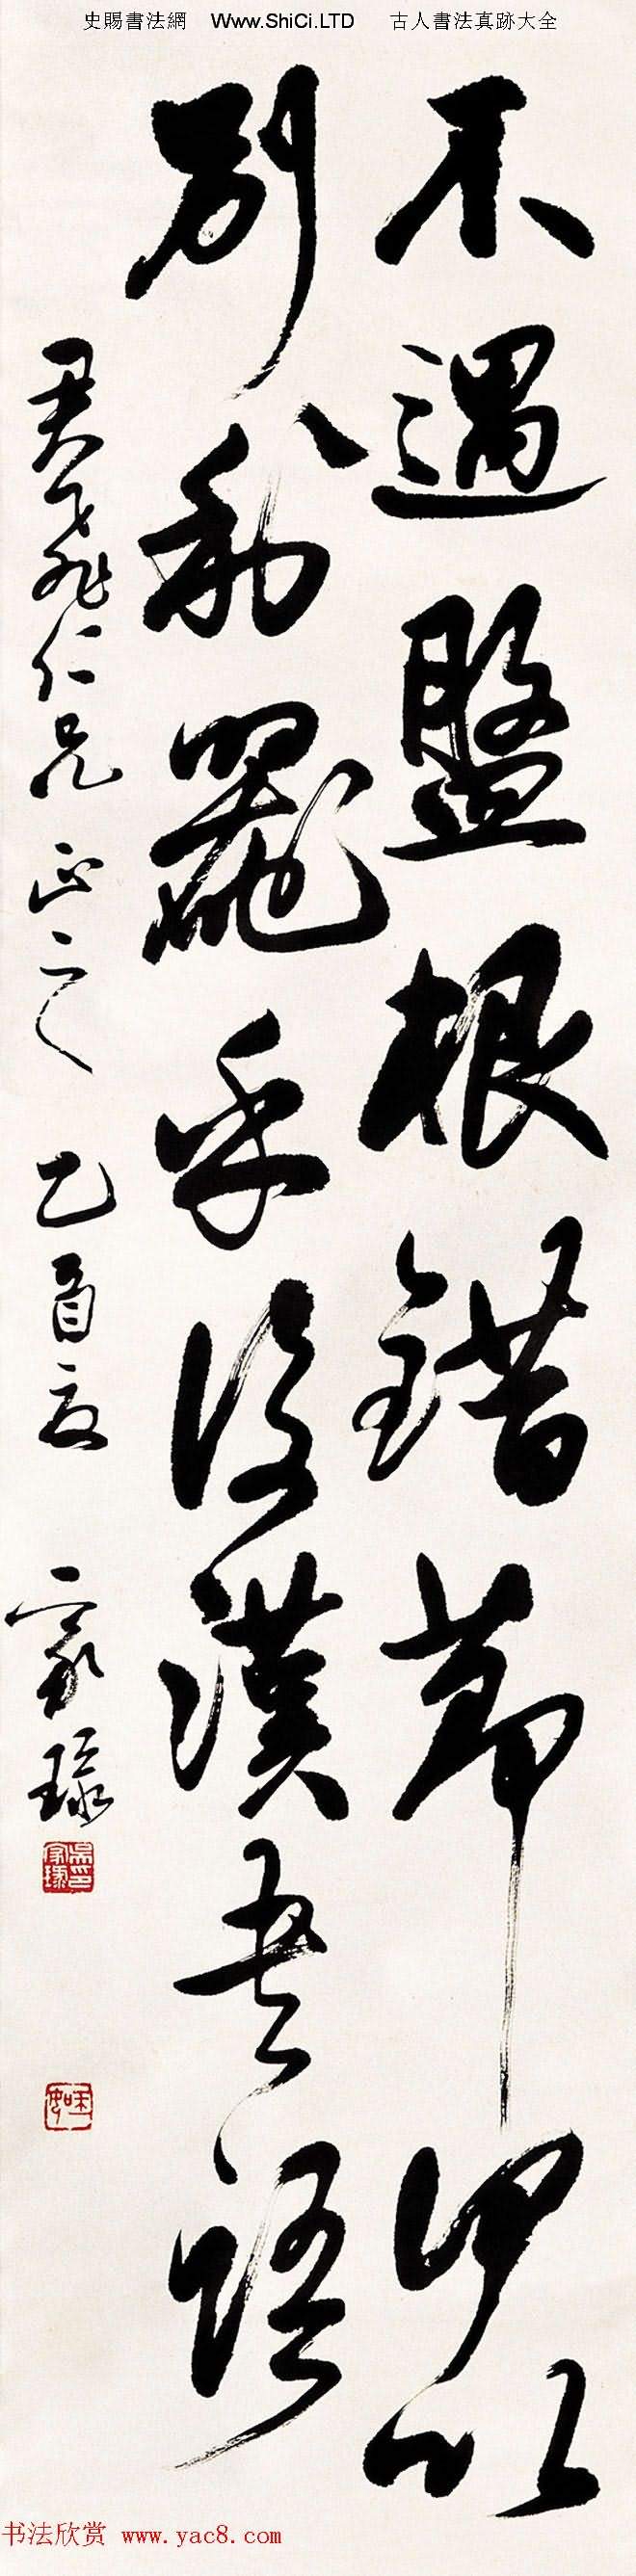 史賜書法網 Www.ShiCi.LTD 古人書法真跡大全
不遇盤根錯節何以
別利器乎後漢書語
君飛仁兄正之 乙酉夏 家琭
書法欣赏 www.yac8.com